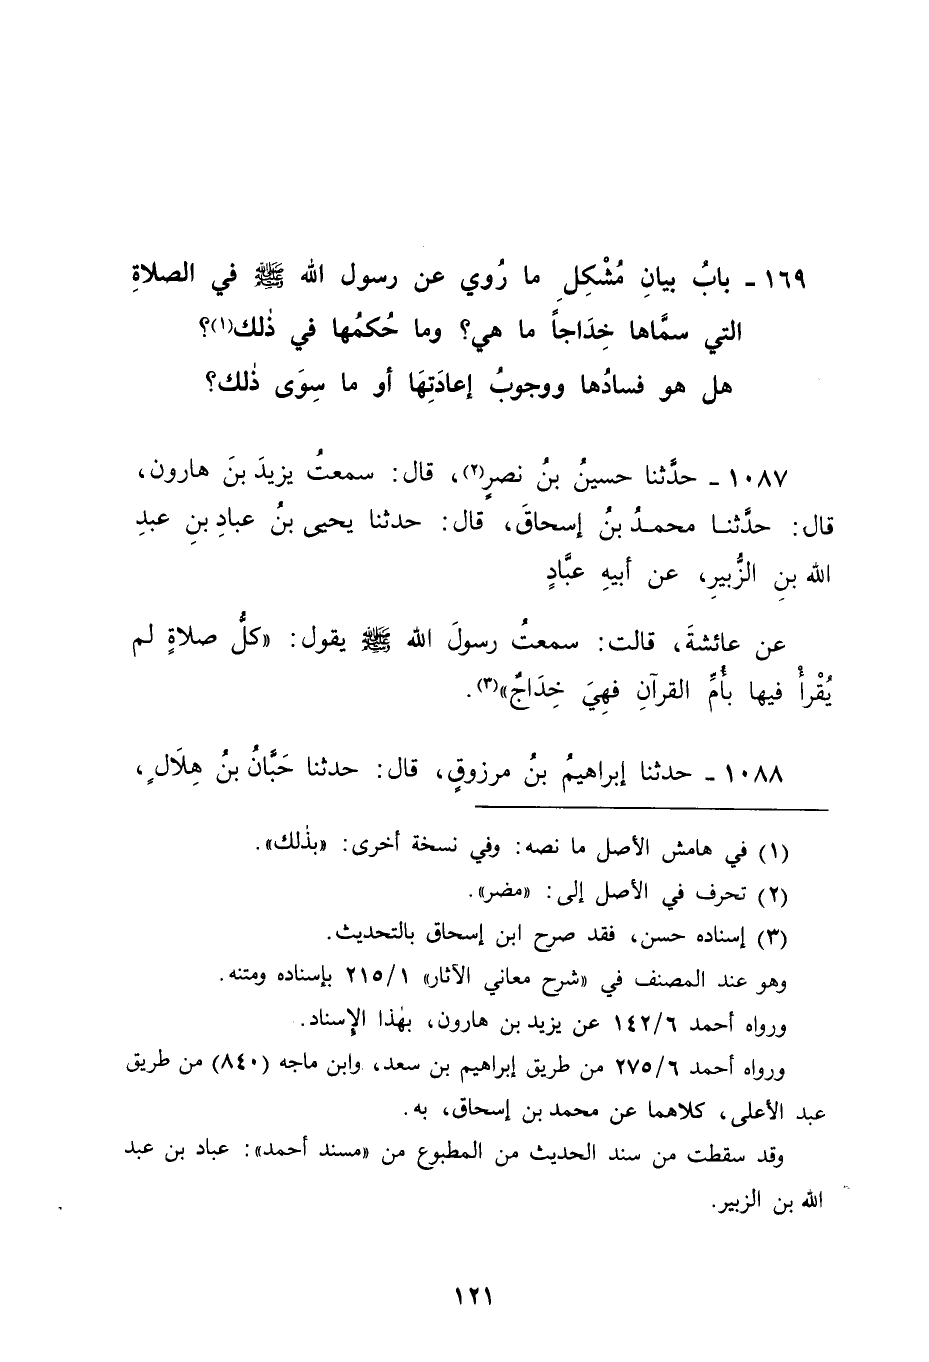 ١٦٩ - بابُ بيانِ مُشْكِلِ ما رُوي عن رسول الله ﷺ في الصلاةِ
التي سمَّاها خِدَاجاً ما هي؟ وما حُكمُها في ذٰلك(١)؟
هل هو فسادُها ووجوبُ إعادَتِهَا أو ما سِوَى ذٰلك؟
١٠٨٧ - حدَّثنا حسينُ بنُ نصرٍ(٢)، قال: سمعتُ يزيدَ بنَ هارون،
قال: حدَّثنا محمدُ بنُ إسحاقَ، قال: حدثنا يحيى بنُ عبادِ بنِ عبدِ
الله بنِ الزُّبيرِ، عن أبيهِ عبَّادٍ
عن عائشةَ، قالت: سمعتُ رسولَ الله ﷺ يقول: «كلُّ صلاةٍ لم
يُقْرأْ فيها بأُمِّ القرآنِ فهِيَ خِدَاجٌ»(٣).
١٠٨٨ - حدثنا إبراهيمُ بنُ مرزوقٍ، قال: حدثنا حَبَّانُ بنُ هِلَالٍ،
(١) في هامش الأصل ما نصه: وفي نسخة أخرى: «بذٰلك».
(٢) تحرف في الأصل إلى: «مضر».
(٣) إسناده حسن، فقد صرح ابن إسحاق بالتحديث.
وهو عند المصنف في «شرح معاني الآثار» ٢١٥/١ بإسناده ومتنه.
ورواه أحمد ١٤٢/٦ عن يزيد بن هارون، بهٰذا الإسناد.
ورواه أحمد ٢٧٥/٦ من طريق إبراهيم بن سعد، وابن ماجه (٨٤٠) من طريق
عبد الأعلى، كلاهما عن محمد بن إسحاق، به.
وقد سقطت من سند الحديث من المطبوع من «مسند أحمد»: عباد بن عبد
الله بن الزبير.
١٢١